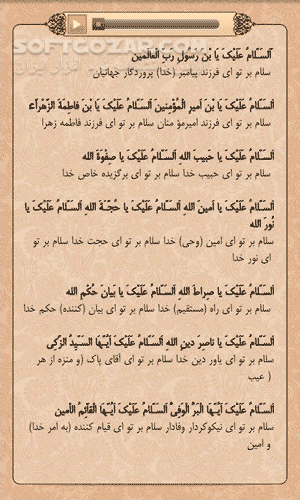 SOFTGOZAR.COM
اَلسَّلامُ عَلَیْکَ یَا بْنَ رَسُولِ رَبِّ الْعالَمینَ
سلام بر تو ای فرزند پیامبر (خدا) پروردگار جهانیان
اَلسَّلامُ عَلَیْکَ یَا بْنَ اَمیرِ الْمُؤْمِنینَ اَلسَّلامُ عَلَیْکَ یَا بْنَ فاطِمَةَ الزَّهْرآءِ
سلام بر تو ای فرزند امیرمؤ منان سلام بر تو ای فرزند فاطمه زهرا
اَلسَّلامُ عَلَیْکَ یا حَبیبَ اللهِ اَلسَّلامُ عَلَیْکَ یا صِفْوَةَ اللهِ
سلام بر تو ای حبیب خدا سلام بر تو ای برگزیده خاص خدا
اَلسَّلامُ عَلَیْکَ یا اَمینَ اللهِ اَلسَّلامُ عَلَیْکَ یا حُجَّةَ اللهِ اَلسَّلامُ عَلَیْکَ یا
نُورَ اللهِ
سلام بر تو ای امین (وحی) خدا سلام بر تو ای حجت خدا سلام بر تو
ای نور خدا
اَلسَّلامُ عَلَیْکَ یا صِراطَ اللهِ اَلسَّلامُ عَلَیْکَ یا بَیانَ حُکْمِ اللهِ
سلام بر تو ای راه (مستقیم) خدا سلام بر تو ای بیان (کننده) حکم خدا
اَلسَّلامُ عَلَیْکَ یا ناصِرَ دینِ اللهِ اَلسَّلامُ عَلَیْکَ اَیُّهَا السَّیِّدُ الزَّکِیُ
سلام بر تو ای یاور دین خدا سلام بر تو ای آقای پاک (و منزه از هر
عیب )
اَلسَّلامُ عَلَیْکَ اَیُّهَا الْبَرُّ الْوَفِیُّ اَلسَّلامُ عَلَیْکَ اَیُّهَا الْقآئِمُ الاْمینُ
سلام بر تو ای نیکوکردار وفادار سلام بر تو ای قیام کننده (به امر خدا)
و امین